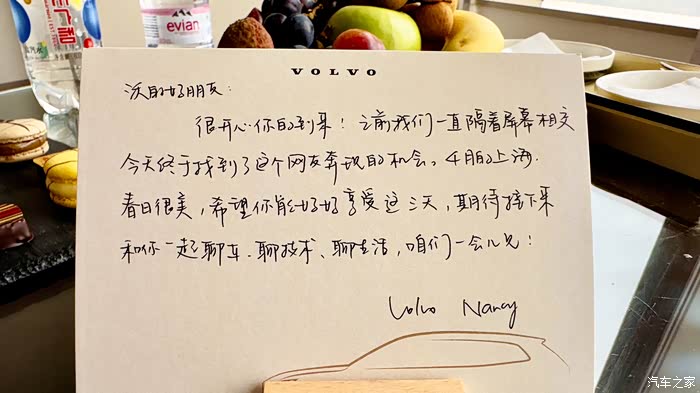 VOLVO
沃的好朋友：
很开心你的到来！之前我们一直隔着屏幕相交
今天终于找到了这个网友奔现的机会。4月的上海.
春日很美，希望你能好好享受这三天，期待接下来
和你一起聊车、聊技术、聊生活，咱们一会儿见！
Volvo Nancy
evian
汽车之家